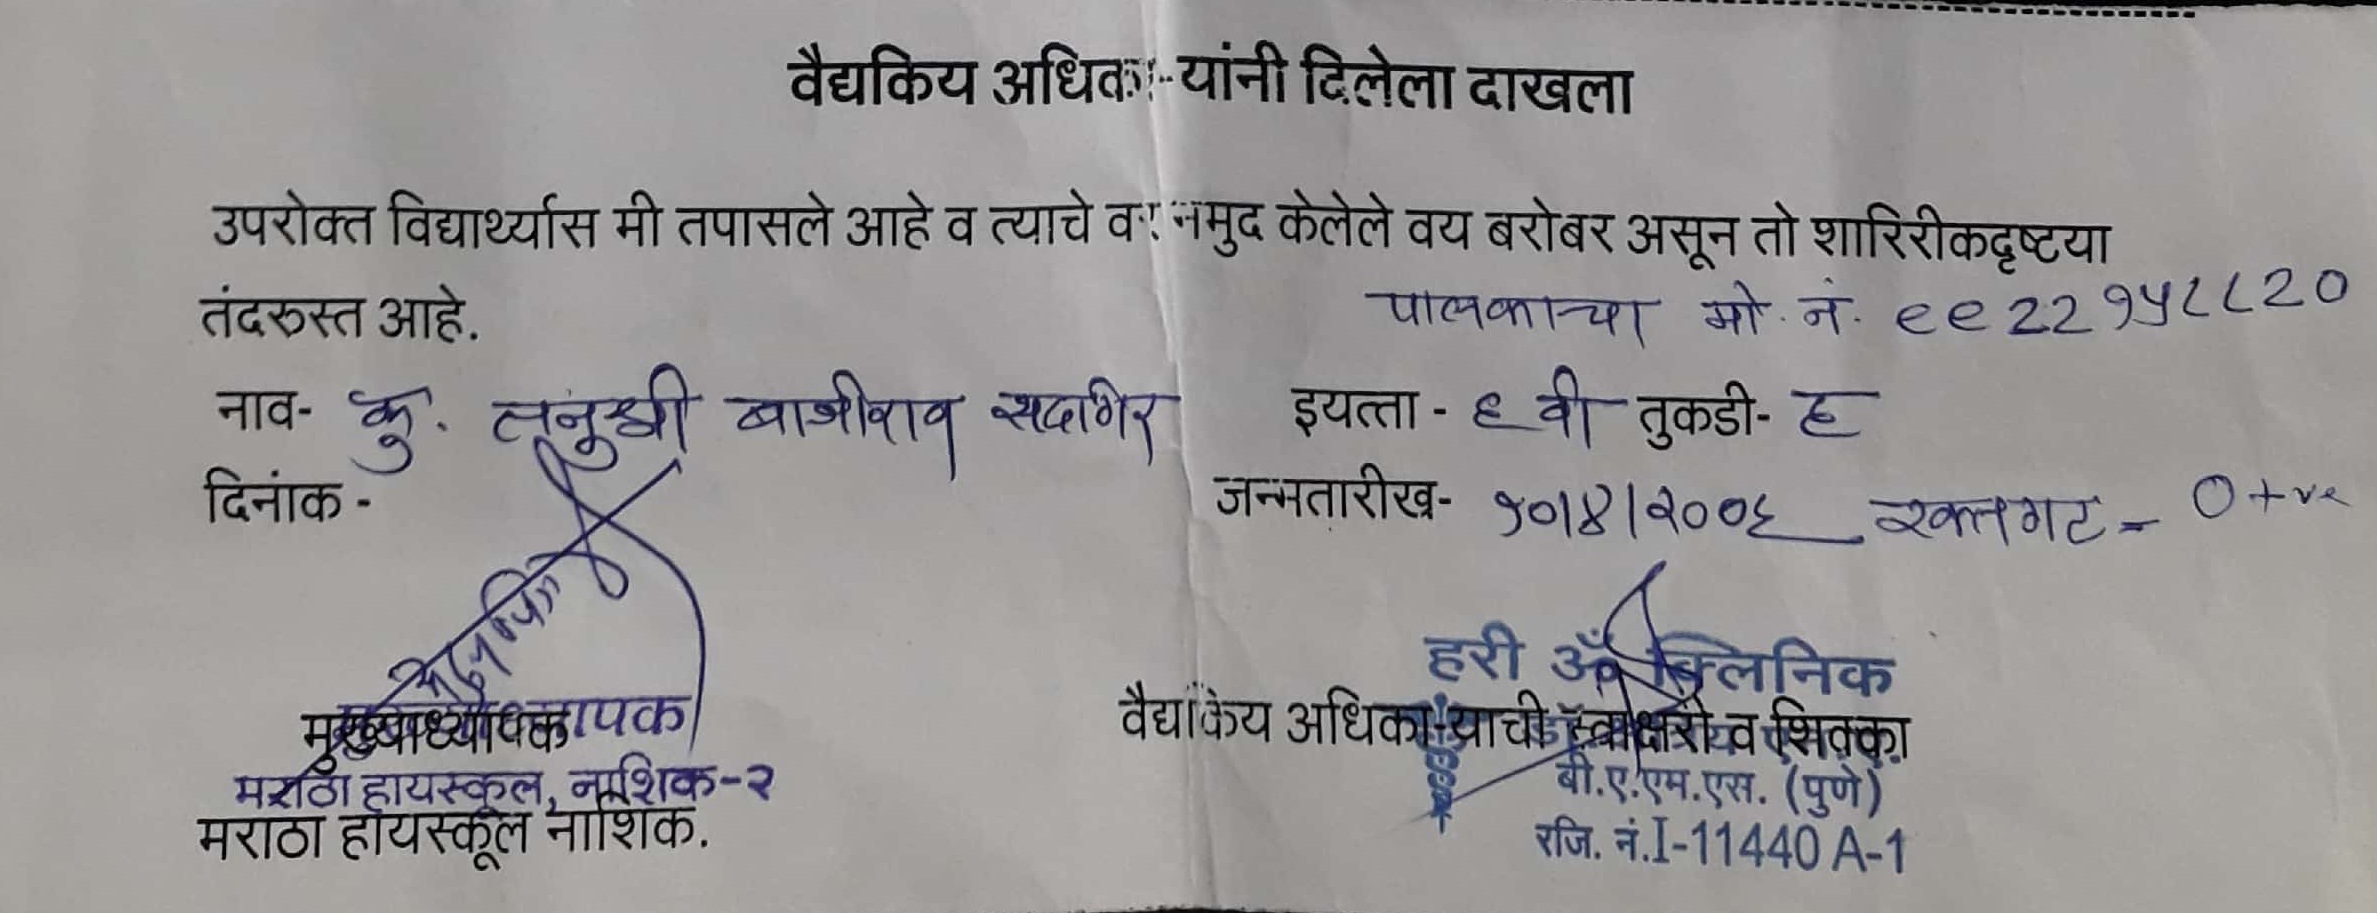 वैद्यकिय अधिका-यांनी दिलेला दाखला
उपरोक्त विद्यार्थ्यास मी तपासले आहे व त्याचे वर नमुद केलेले वय बरोबर असून तो शारिरीकदृष्टया
तंदरुस्त आहे.
पालकाचा मो. नं. ९९22१५८८20
नाव- कु. तनुश्री बाजीराव सदगिर इयत्ता - ६ वी तुकडी- ह
दिनांक - जन्मतारीख- १०/४/२००६ रक्तगट - O +ve
हरी ॐ क्लिनिक
मुख्याध्यापक वैद्यकिय अधिका-याची स्वाक्षरी व शिक्का
मराठा हायस्कूल, नाशिक-२ बी.ए.एम.एस. (पुणे)
मराठा हायस्कूल नाशिक. रजि. नं.I-11440 A-1